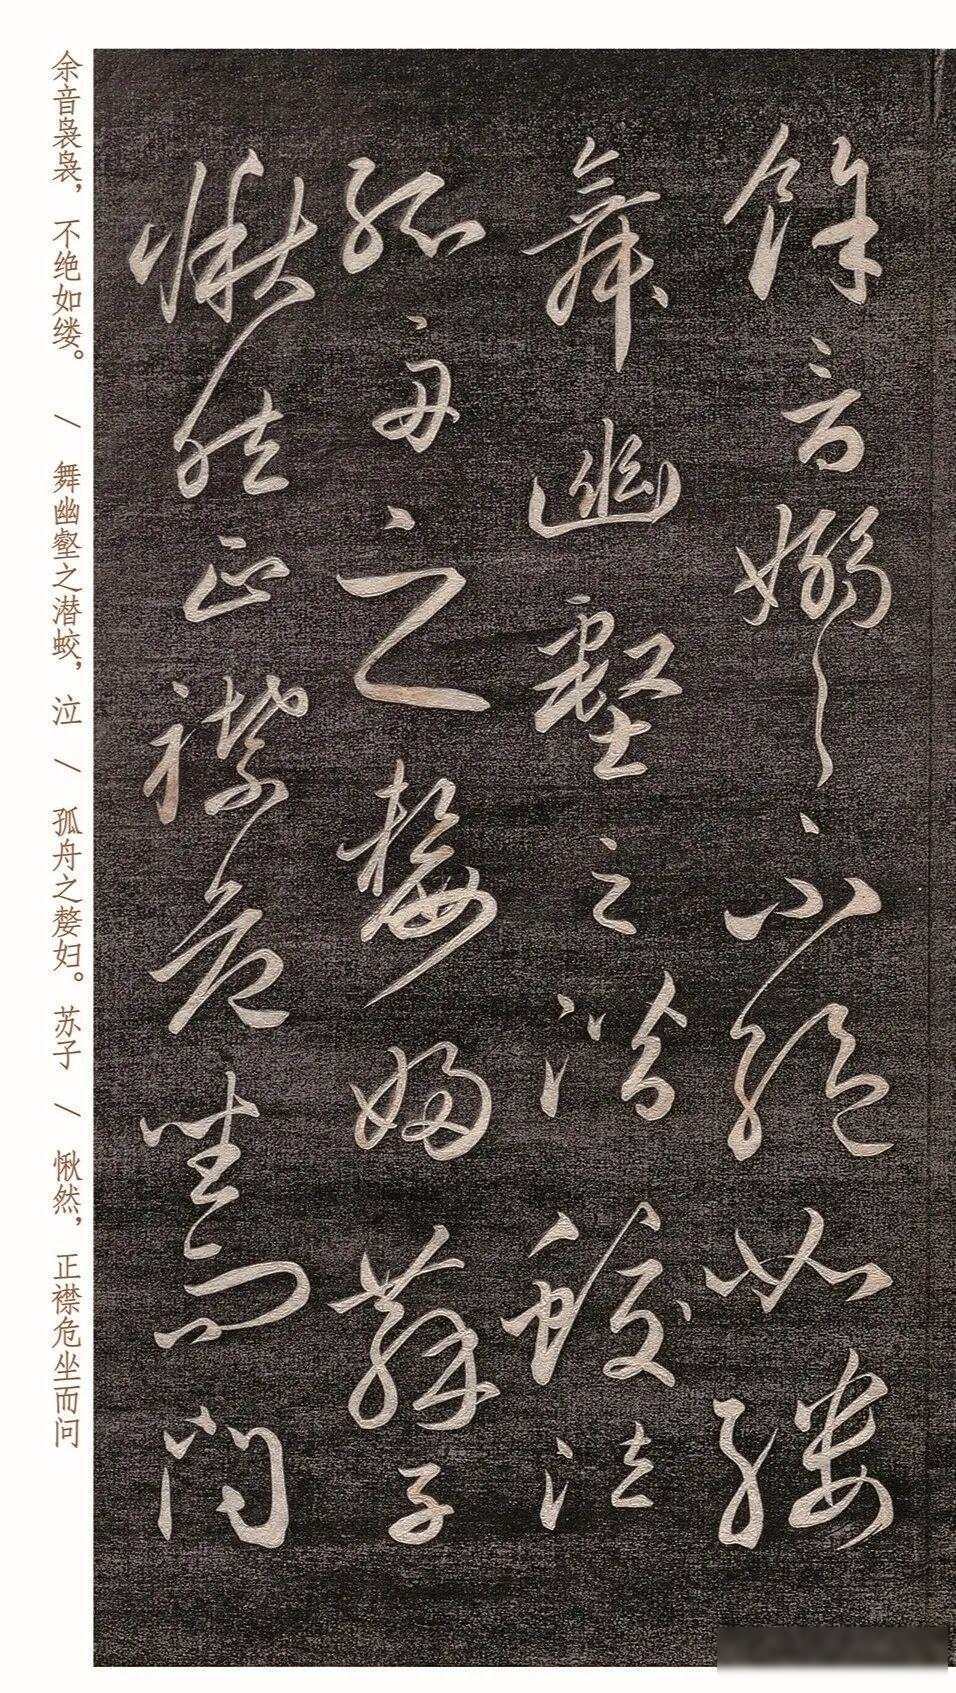 餘音嫋々不絶如縷
舞幽壑之潛蛟泣
孤舟之嫠婦蘇子
愀然正襟危坐而問
余音袅袅，不绝如缕。 / 舞幽壑之潜蛟，泣 / 孤舟之嫠妇。苏子 / 愀然，正襟危坐而问